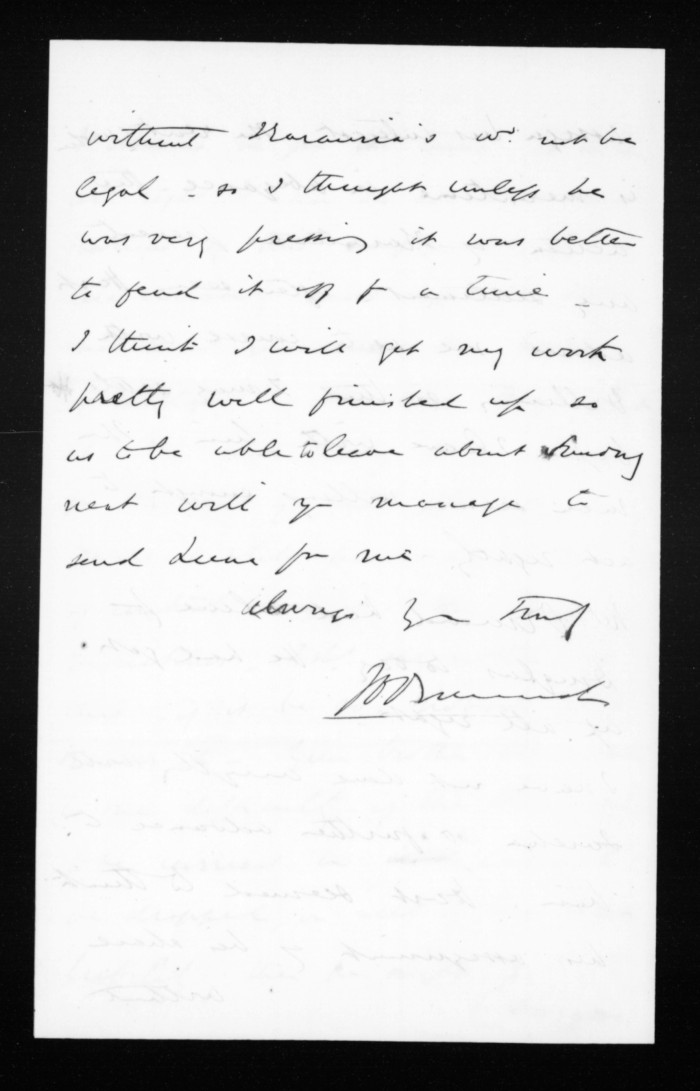 without Karauria's wd. not be
legal - so I thought unless he
was very pressing it was better
to fend it off for a time -
I think I will get my work
pretty well finished up so
as to be able to leave about Sunday
next will you manage to
send Leave for me
always yrs truly